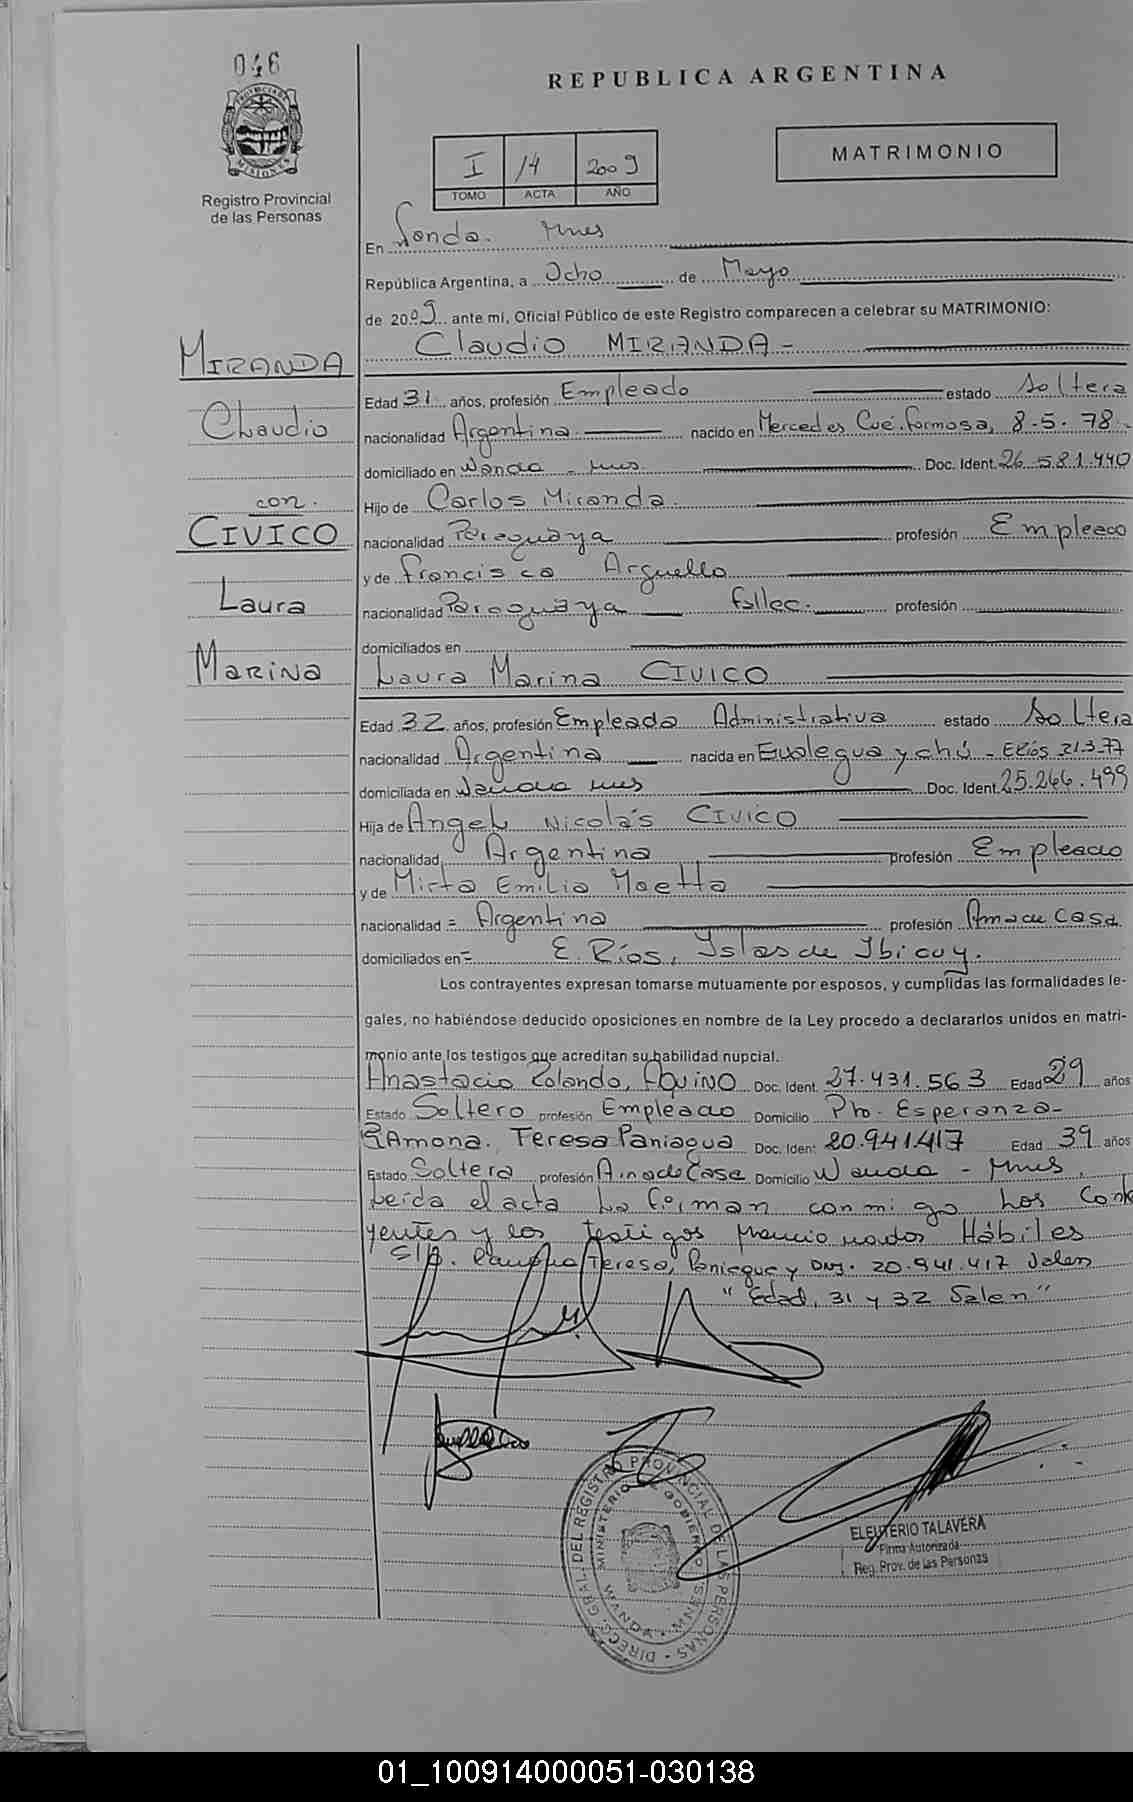 046
REPUBLICA ARGENTINA
PROVINCIA DE
MISIONES
Registro Provincial
de las Personas
I 14 2009
TOMO ACTA AÑO
MATRIMONIO
En Wanda. Mnes
República Argentina, a Ocho de Mayo
de 2009 ante mi, Oficial Público de este Registro comparecen a celebrar su MATRIMONIO:
MIRANDA
Claudio MIRANDA -
Edad 31 años, profesión Empleado estado Soltera
Claudio
nacionalidad Argentina nacido en Mercedes Cué. Formosa, 8-5-78-
domiciliado en Wanda - Mnes Doc. Ident. 26.581.440
con.
Hijo de Carlos Miranda.
CIVICO
nacionalidad Paraguaya profesión Empleado
y de Francisca Arguello
Laura
nacionalidad Paraguaya fallec. profesión
domiciliados en
Marina
Laura Marina CIVICO
Edad 32 años, profesión Empleada Administrativa estado Soltera
nacionalidad Argentina nacida en Gualeguaychú - E Ríos 21.3.77
domiciliada en Wanda Mnes Doc. Ident. 25.266.499
Hija de Angel Nicolás CIVICO
nacionalidad Argentina profesión Empleado
y de Mirta Emilia Maetta
nacionalidad = Argentina profesión Ama de Casa
domiciliados en = E. Ríos, Islas de Ibicuy.
Los contrayentes expresan tomarse mutuamente por esposos, y cumplidas las formalidades le-
gales, no habiéndose deducido oposiciones en nombre de la Ley procedo a declararlos unidos en matri-
monio ante los testigos que acreditan su habilidad nupcial.
Anastacio Rolando, AQUINO Doc. Ident. 27.431.563 Edad 29 años
Estado Soltero profesión Empleado Domicilio Pto. Esperanza-
RAmona. Teresa Paniagua Doc. Iden: 20.941.417 Edad 39 años
Estado Soltera profesión Ama de Casa Domicilio Wanda - Mnes.
Leida el acta la firman conmigo los Contra
yentes y los testigos mencionados Hábiles
S/R. Ramona Teresa, Paniagua y DNI. 20.941.417 Valen
" Edad, 31 y 32 Valen"
DIRECC. GRAL. DEL REGISTRO PROVINCIAL DE LAS PERSONAS
MINISTERIO DE GOBIERNO
WANDA - MNES.
ELEUTERIO TALAVERA
Firma Autorizada
Reg. Prov. de las Personas
01_100914000051-030138